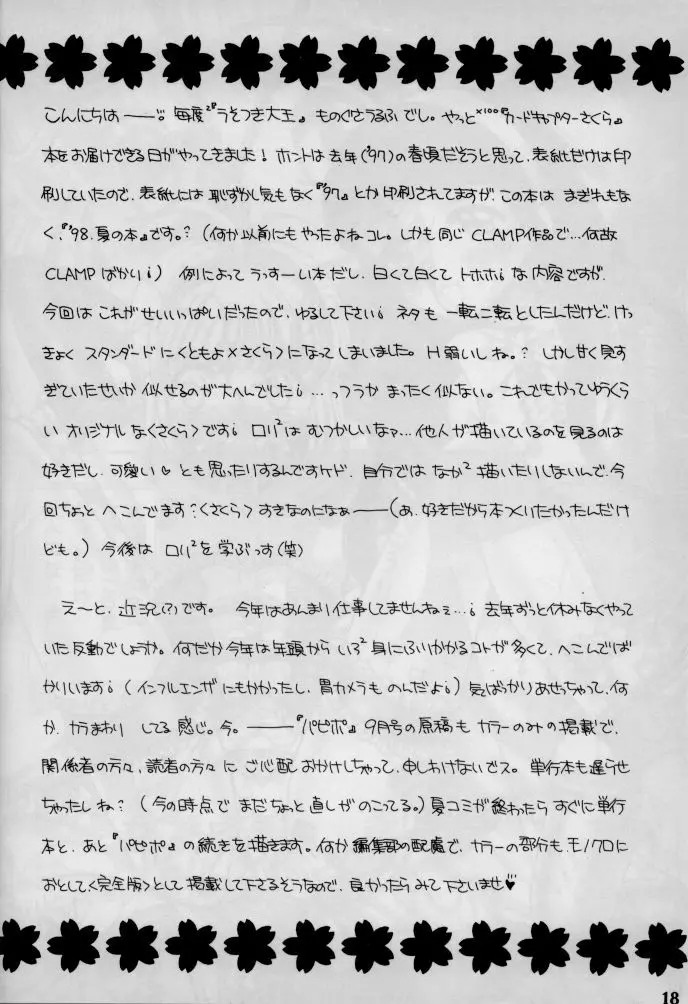 こんにちはーー💢 毎度²『うそつき大王』ものぐさうるふでし。やっと×100『カードキャプターさくら』
本をお届けできる日がやってきました！ホントは去年('97)の春頃だそうと思って、表紙だけは印
刷していたので、表紙には恥ずかし気もなく『'97』とか印刷されてますが、この本はまぎれもな
く、『'98.夏の本』です。?（何か以前にもやったよねコレ。しかも同じCLAMP作品で…何故
CLAMPばかり¡）例によってうっすーい本だし、白くて白くてトホホ¡な内容ですが、
今回はこれがせいいっぱいだったので、ゆるして下さい¡ ネタも一転二転としたんだけど、けっ
きょくスタンダードに〈ともよ×さくら〉になってしまいました。H弱いしね。? しかし甘く見す
ぎていたせいか似せるのが大へんでした¡…っつうかまったく似ない。これでもかってゆうくら
いオリジナルな〈さくら〉です¡ ロリ²はむつかしいなァ…他人が描いているのを見るのは
好きだし、可愛い♡とも思ったりするんですケド、自分ではなか²描いたりしないんで、今
回ちょっとへこんでます?〈さくら〉すきなのになぁーー（あ、好きだから本つくりたかったんだけ
ども。）今後はロリ²を学ぶっす(笑)
え〜と、近況(?)です。今年はあんまり仕事してませんねぇ…¡ 去年ずっと休みなくやって
いた反動でしょうか。何だか今年は年頭からいろ²身にふりかかるコトが多くて、へこんでば
かりいます¡（インフルエンザにもかかったし、胃カメラものんだよ¡）気ばっかりあせっちゃって、何
か、カラまわりしてる感じ。今。ーー『パピポ』9月号の原稿もカラーのみの掲載で、
関係者の方々、読者の方々にご心配おかけしちゃって、申しわけないでス。単行本も遅らせ
ちゃったしね?（今の時点でまだちょっと直しがのこってる。）夏コミが終わったらすぐに単行
本と、あと『パピポ』の続きを描きます。何か編集部の配慮で、カラーの部分も、モノクロに
おとして〈完全版〉として掲載して下さるそうなので、良かったらみて下さいませ♥
18